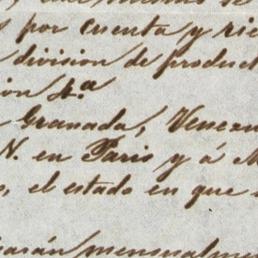 por cuenta y rie
division de product
ion 4.ª
Granada, Venezu
N. en Paris y á M
, el estado en que
sarán mensualme